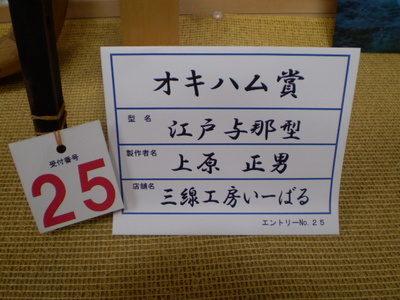 オキハム賞
型名 江戸与那型
製作者名 上原 正男
店舗名 三線工房いーばる
エントリーNo.25
受付番号
25